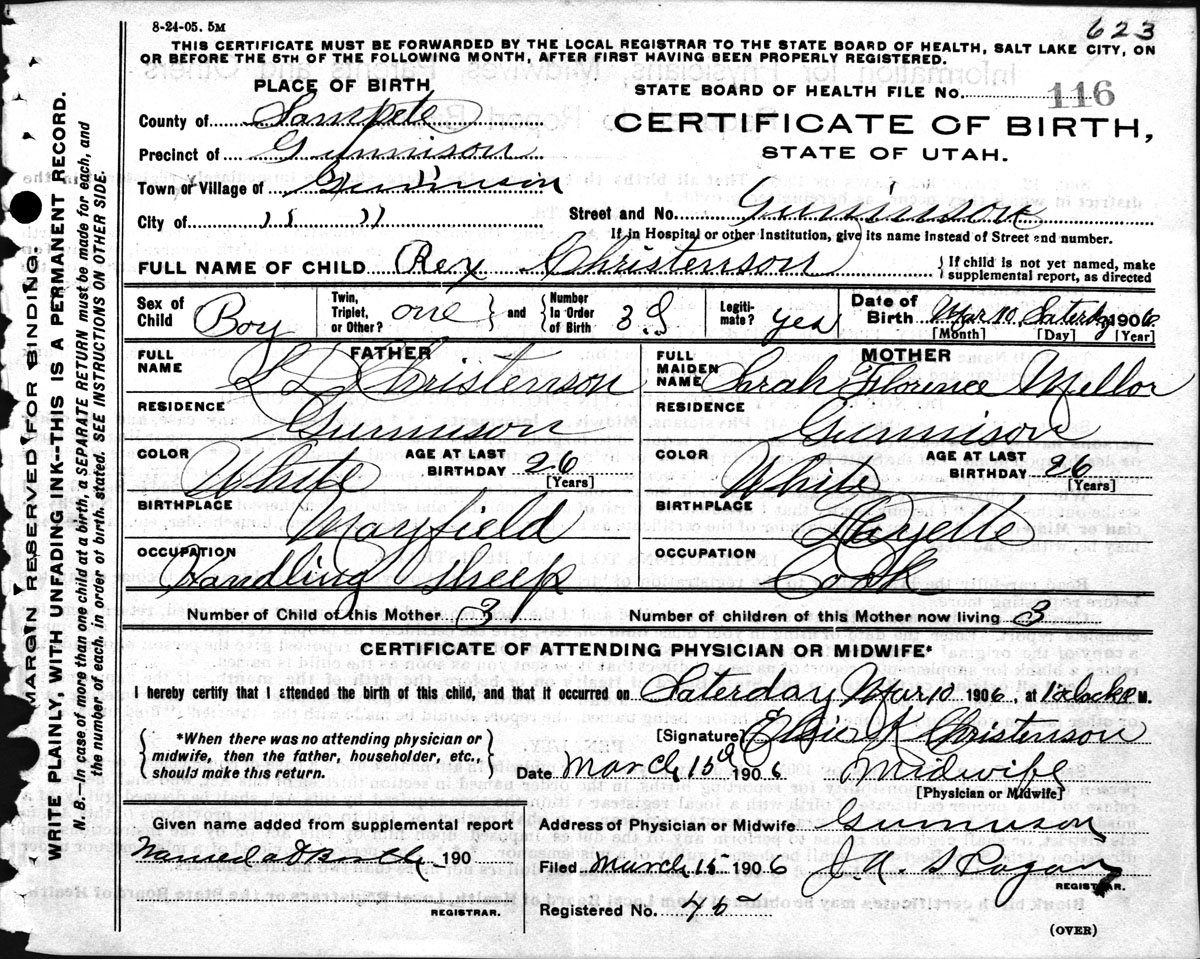 8-24-05. 5M
623
THIS CERTIFICATE MUST BE FORWARDED BY THE LOCAL REGISTRAR TO THE STATE BOARD OF HEALTH, SALT LAKE CITY, ON
OR BEFORE THE 5TH OF THE FOLLOWING MONTH, AFTER FIRST HAVING BEEN PROPERLY REGISTERED.
PLACE OF BIRTH
STATE BOARD OF HEALTH FILE No. 116
County of Sanpete
CERTIFICATE OF BIRTH,
Precinct of Gunnison
STATE OF UTAH.
Town or Village of Gunnison
City of " "
Street and No. Gunnison
If in Hospital or other Institution, give its name instead of Street and number.
FULL NAME OF CHILD Rex Christenson
{If child is not yet named, make supplemental report, as directed
Sex of Child Boy
Twin, Triplet, or Other? one } and { Number In Order of Birth 3d
Legitimate? yes
Date of Birth Mar 10 Saterday 1906
[Month] [Day] [Year]
FATHER
MOTHER
FULL NAME Christenson
FULL MAIDEN NAME Sarah Florence Mellor
RESIDENCE Gunnison
RESIDENCE Gunnison
COLOR White AGE AT LAST BIRTHDAY 26 [Years]
COLOR White AGE AT LAST BIRTHDAY 26 [Years]
BIRTHPLACE Mayfield
BIRTHPLACE Fayette
OCCUPATION Handling Sheep
OCCUPATION Cook
Number of Child of this Mother 3
Number of children of this Mother now living 3
CERTIFICATE OF ATTENDING PHYSICIAN OR MIDWIFE*
I hereby certify that I attended the birth of this child, and that it occurred on Saterday Mar 10 1906, at 1 oclock P.M.
*When there was no attending physician or
midwife, then the father, householder, etc.,
should make this return.
[Signature] Christenson
Date March 15 1906 Midwife
[Physician or Midwife]
Given name added from supplemental report
Address of Physician or Midwife Gunnison
Named at Birth 190
Filed March 15 1906 J. A.
REGISTRAR.
REGISTRAR.
Registered No. 45
(OVER)
MARGIN RESERVED FOR BINDING.
WRITE PLAINLY, WITH UNFADING INK--THIS IS A PERMANENT RECORD.
N. B.—In case of more than one child at a birth, a SEPARATE RETURN must be made for each, and
the number of each, in order of birth, stated. SEE INSTRUCTIONS ON OTHER SIDE.